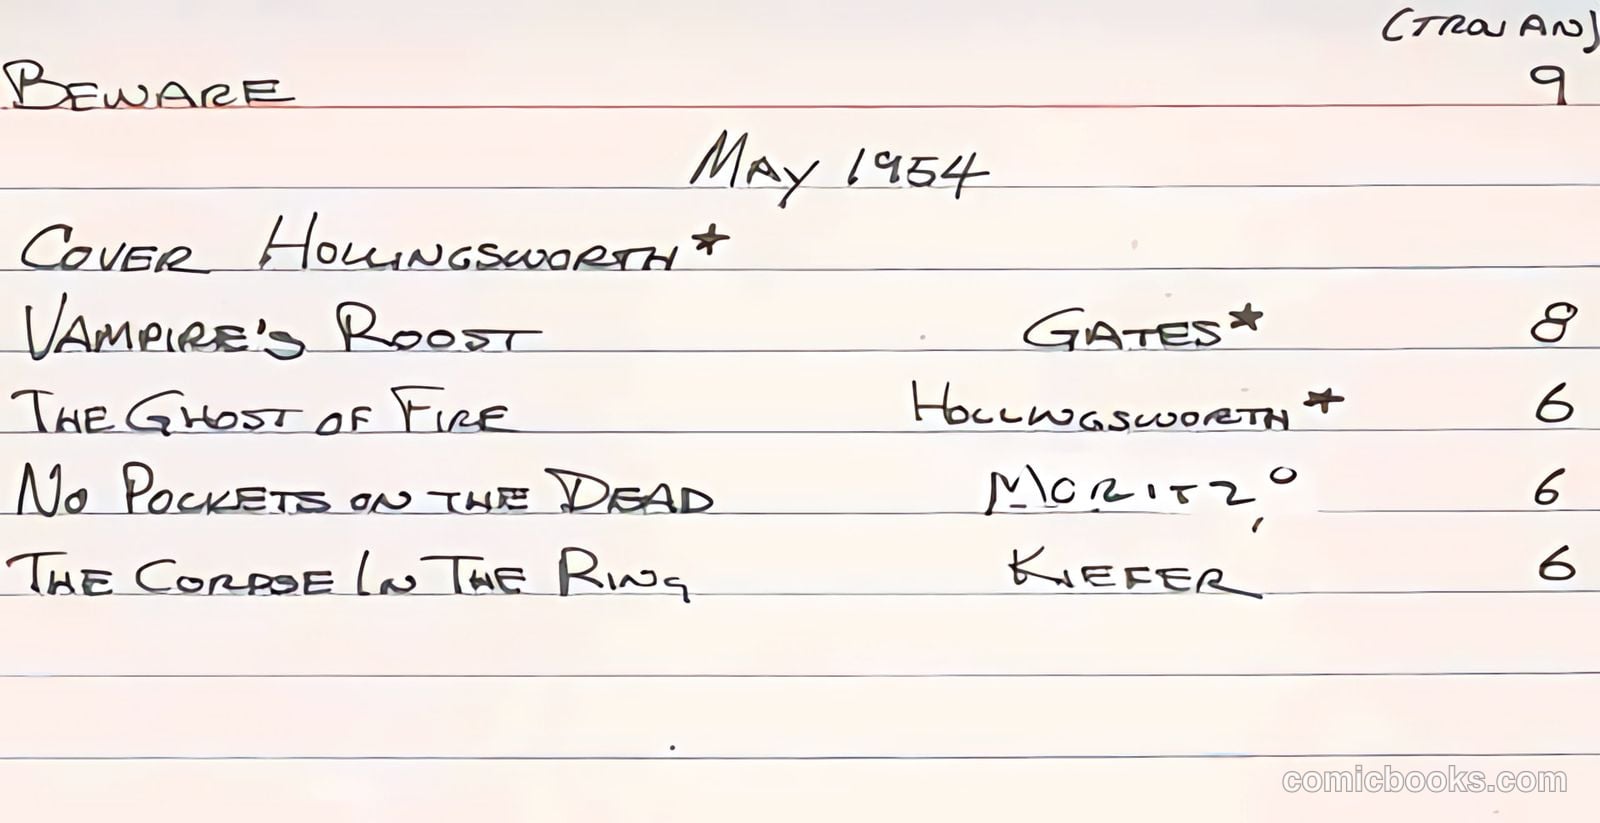 (TROJAN)
BEWARE 9
MAY 1954
COVER HOLLINGSWORTH*
VAMPIRE'S ROOST GATES* 8
THE GHOST OF FIRE HOLLINGSWORTH* 6
NO POCKETS ON THE DEAD MORITZ° 6
THE CORPSE IN THE RING KIEFER 6
comicbooks.com